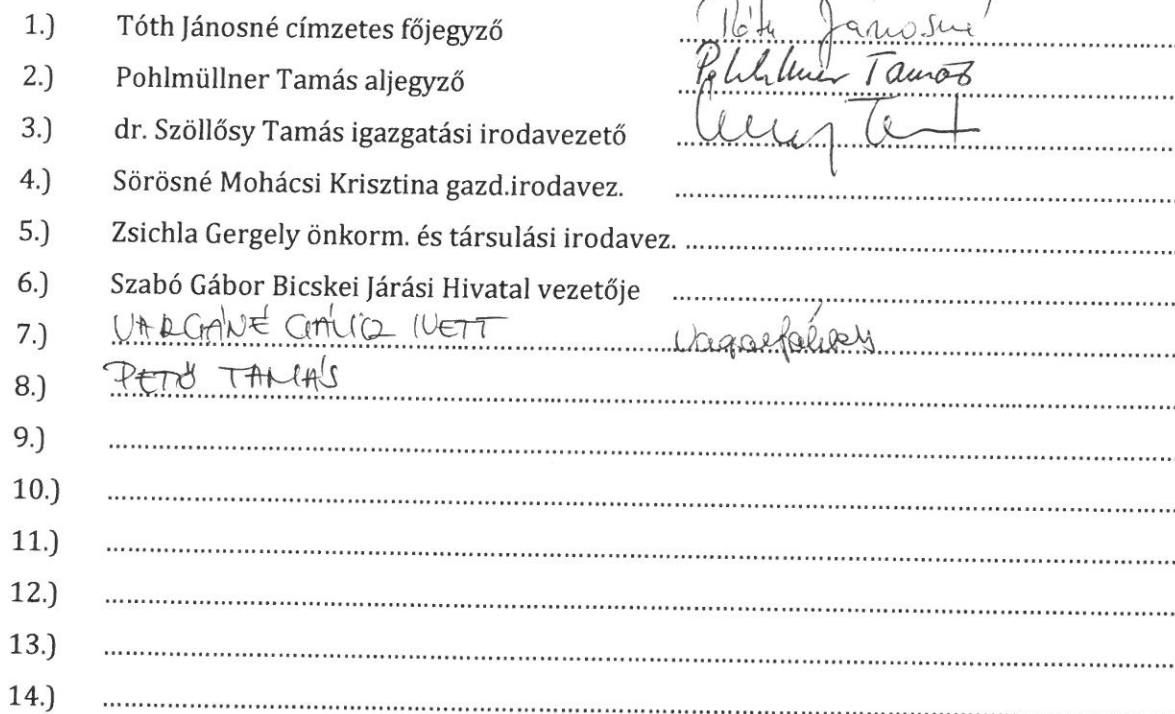 1.) Tóth Jánosné címzetes főjegyző Tóth Jánosné
2.) Pohlmüllner Tamás aljegyző Pohlmüllner Tamás
3.) dr. Szöllősy Tamás igazgatási irodavezető
4.) Sörösné Mohácsi Krisztina gazd.irodavez.
5.) Zsichla Gergely önkorm. és társulási irodavez.
6.) Szabó Gábor Bicskei Járási Hivatal vezetője
7.) VARGÁNÉ IVETT
8.) PETŐ TAMÁS
9.)
10.)
11.)
12.)
13.)
14.)